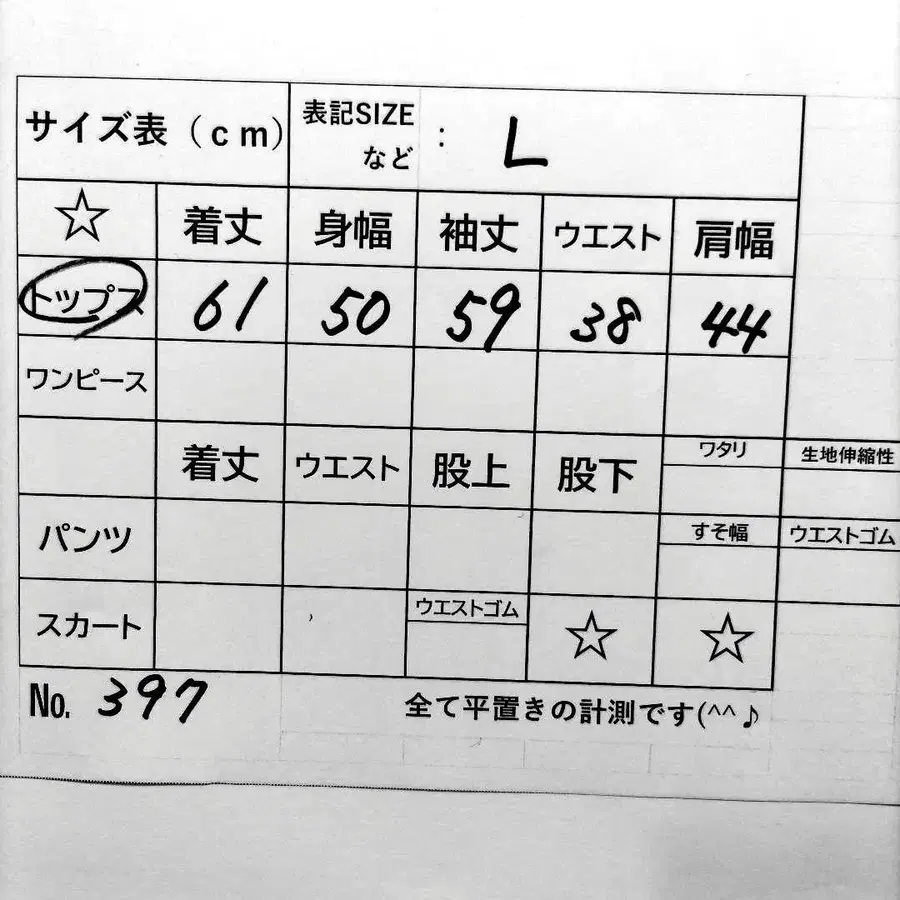 サイズ表（cm） 表記SIZE など : L
☆ 着丈 身幅 袖丈 ウエスト 肩幅
トップス 61 50 59 38 44
ワンピース
着丈 ウエスト 股上 股下 ワタリ 生地伸縮性
パンツ すそ幅 ウエストゴム
スカート ウエストゴム ☆ ☆
No. 397 全て平置きの計測です(^^♪